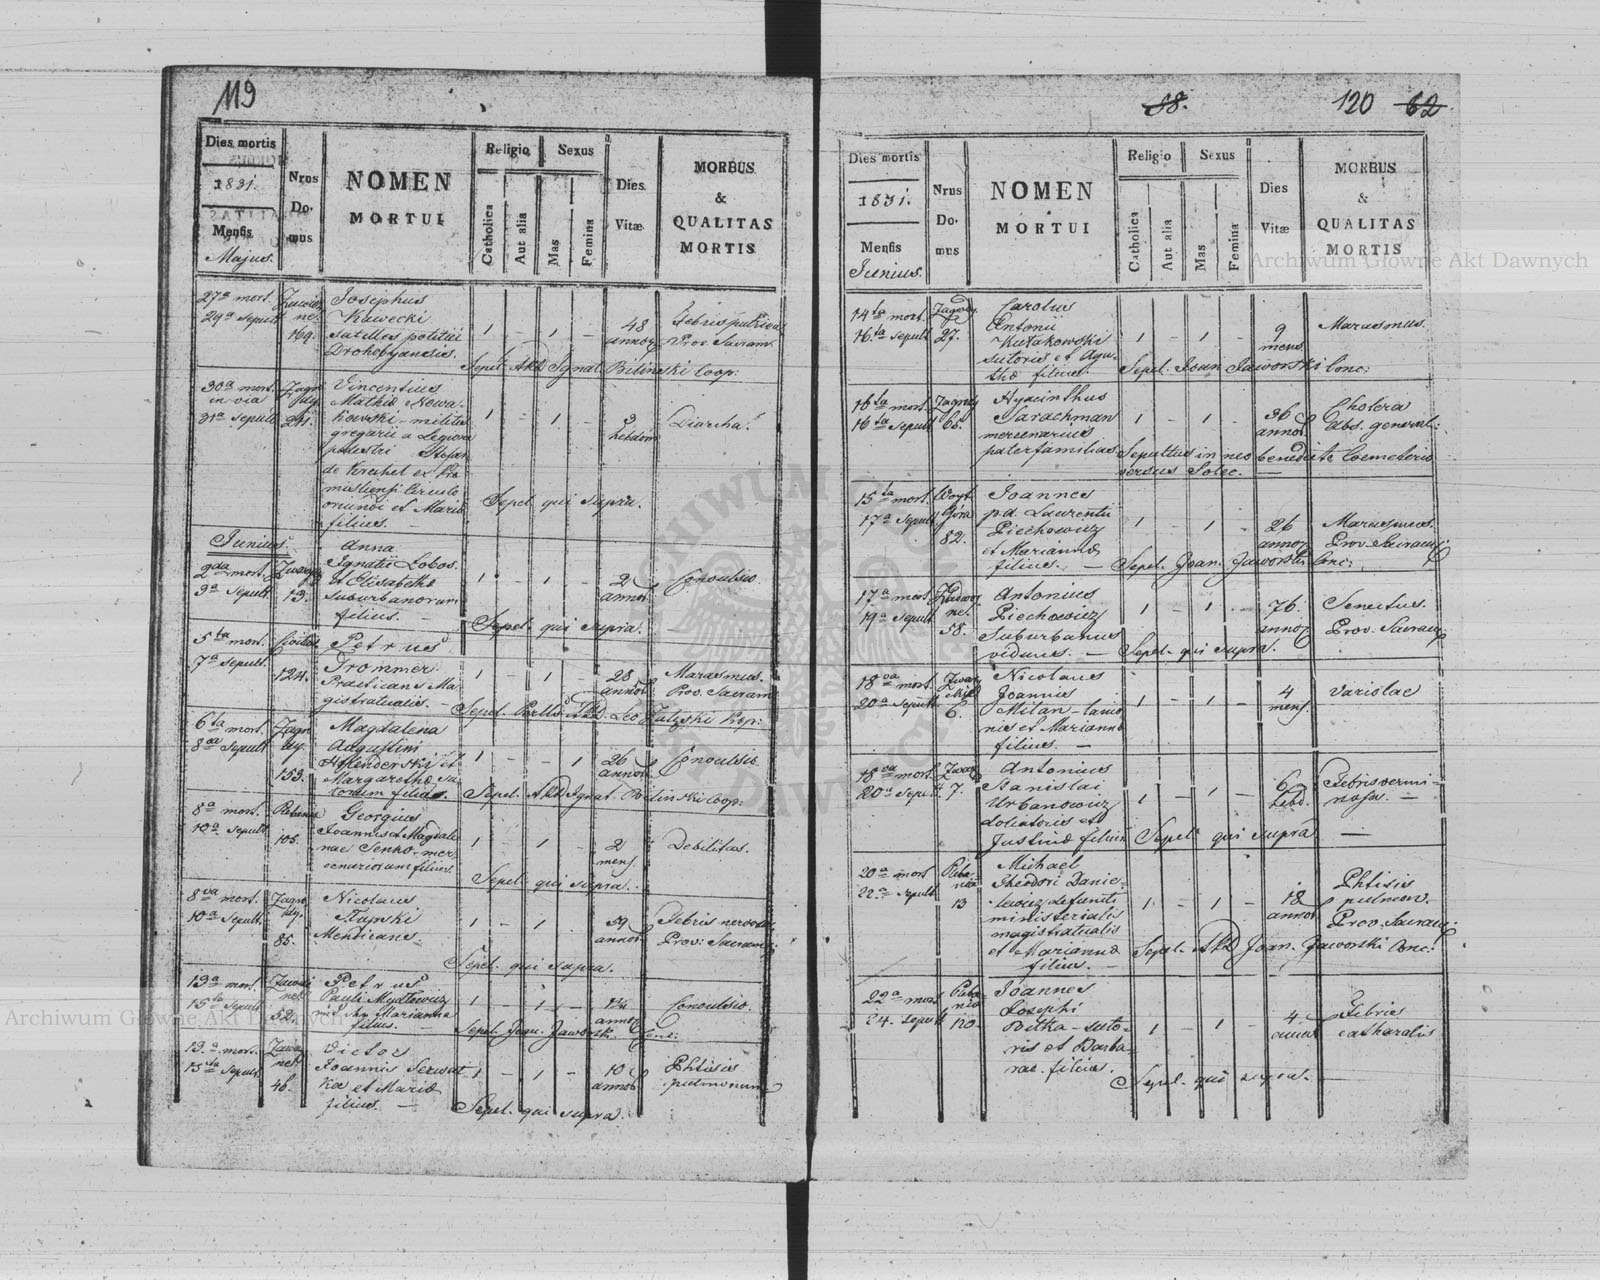 119
Dies mortis
1831.
Mensis
Majus.
Nrus
Do-
mus
NOMEN
MORTUI
Religio
Catholica
Aut alia
Sexus
Mas
Femina
Dies
Vitæ
MORBUS
&
QUALITAS
MORTIS
27a mort.
29a Sepult
169.
Josephus
Kawecki
satelles politii
Drohobycensis.
1 - 1 -
48
annor
Febris putrida
Prov. Sacram
Sepel. AR Ignat. Bilinski Coop:
30a mort.
in via
31a Sepult
Vincentius
Mathiæ Nowa-
kowski - militis
gregarii a Legione
pedestri
oriundi et Maria
filius. -
1 - 1 -
3
hebdom
Diarrha.
Sepel. qui supra.
Junius.
2da mort.
3a Sepult.
13.
Anna
Ignatii Lobos
et Elisabethæ
suburbanorum
filius. -
1 - 1 -
2
annor
Convulsio.
Sepel. qui supra.
5ta mort.
7a Sepult.
124.
Petrus
Trommer
Practicans Ma-
gistratualis. -
1 - 1 -
28
annor
Marasmus.
Prov. Sacram
6ta mort.
8va Sepult
153.
Magdalena
Augustini
et
Margarethæ su-
torum filia.
1 - - 1
26
annor
Convulsio.
Sepel. ARD Ignat. Bilinski Coop:
8a mort.
10a Sepult.
105.
Georgius
Joannis et Magdale
nae Senko mer-
cenariorum filius
1 - 1 -
2
mens
Debilitas.
Sepel. qui supra.
8va mort.
10a Sepult.
85.
Nicolaus
Mendicans -
1 - 1 -
59
annor
Febris nervosa
Prov: Sacram:
Sepel. qui supra.
13a mort.
15ta Sepult
52.
Petrus
Pauli
Marianna
filius.
1 - 1 -
Convulsio.
Sepel. Joan. Jaworski Conc:
13.a mort.
15ta Sepult.
46.
Victor
Joannis
et Mariæ
filius. -
1 - 1 -
10
annor
Phtisis
pulmonum
Sepel. qui supra.
58.
120
62
Dies mortis
1831.
Mensis
Junius.
Nrus
Do-
mus
NOMEN
MORTUI
Religio
Catholica
Aut alia
Sexus
Mas
Femina
Dies
Vitæ
MORBUS
&
QUALITAS
MORTIS
14ta mort.
16ta Sepult
27.
Carolus
Antonii
Kulakowski
sutoris et Aga-
thæ filius.
1 - 1 -
9
mens
Marasmus.
Sepel. Joan Jaworski Conc:
16ta mort.
16ta Sepult
66.
Hyacinthus
Tarachman
mercenarius
paterfamilias.
1 - 1 -
36
annor
Cholera
Obs. general:
Sepultus in neo benedicto Coemeterio
versus Solec. -
15ta mort.
17a Sepult
Woyt.
Góra
82.
Joannes
p.d. Laurentii
Piechowicz
et Mariannæ
filius. -
1 - 1 -
26
annor
Marasmus.
Prov. Sacram
Sepel. Joan. Jaworski Conc:
17a mort
19a Sepult
58.
Antonius
Piechowicz
Suburbanus
viduus. -
1 - 1 -
76.
annor
Senectus.
Prov. Sacram
Sepel. qui supra.
18va mort
20a Sepult
6.
Nicolaus
Joannis
Milan - lanio
nis et Mariannæ
filius. -
1 - 1 -
4
mens.
Variolae
18va mort.
20a Sepult
7.
Antonius
Stanislai
Urbanowicz
doliatoris et
Justinæ filius
1 - 1 -
6
hebd.
Febris vermi-
nosa. -
Sepel. qui supra -
20a mort
22a Sepult.
13
Michael
Theodori Danie-
lewicz defuncti
ministerialis
magistratualis
et Mariannæ
filius. -
1 - 1 -
18
annor
Phtisis
pulmon.
Prov. Sacram:
Sepel. ARD Joan. Jaworski Conc:
22a mort
24. Sepult
120.
Joannes
Josephi
Betka - suto-
ris et Barba-
rae filius.
1 - 1 -
4
annor
Febris
catharalis
Sepel. qui supra. -
Archiwum Główne Akt Dawnych
Archiwum Główne Akt Dawnych